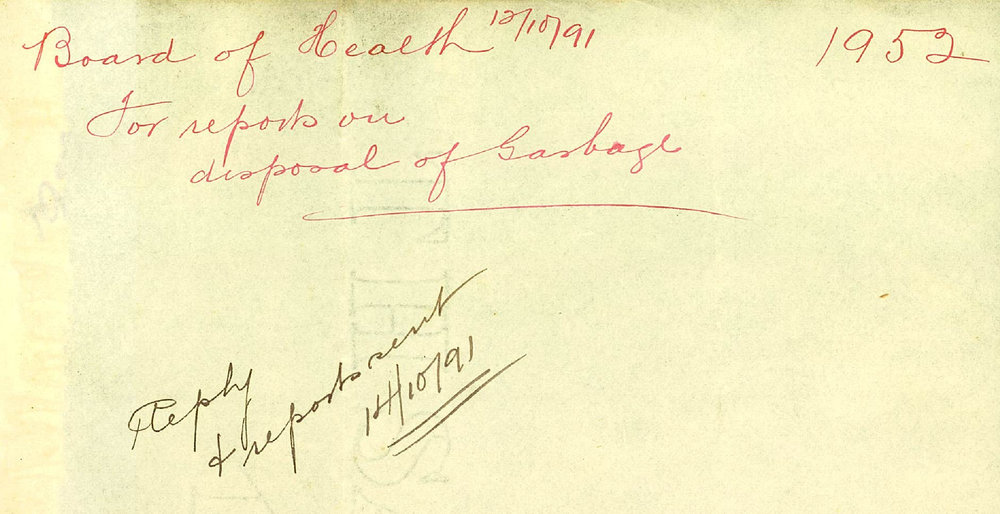 Board of Health 12/10/91 1952
For reports on
disposal of Garbage
Reply
& reports sent
14/10/91